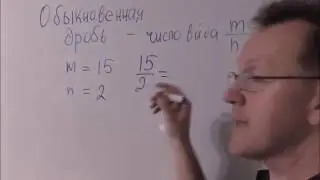 Обыкновенная
дробь – число вида m/n
m = 15 15/2 =
n = 2